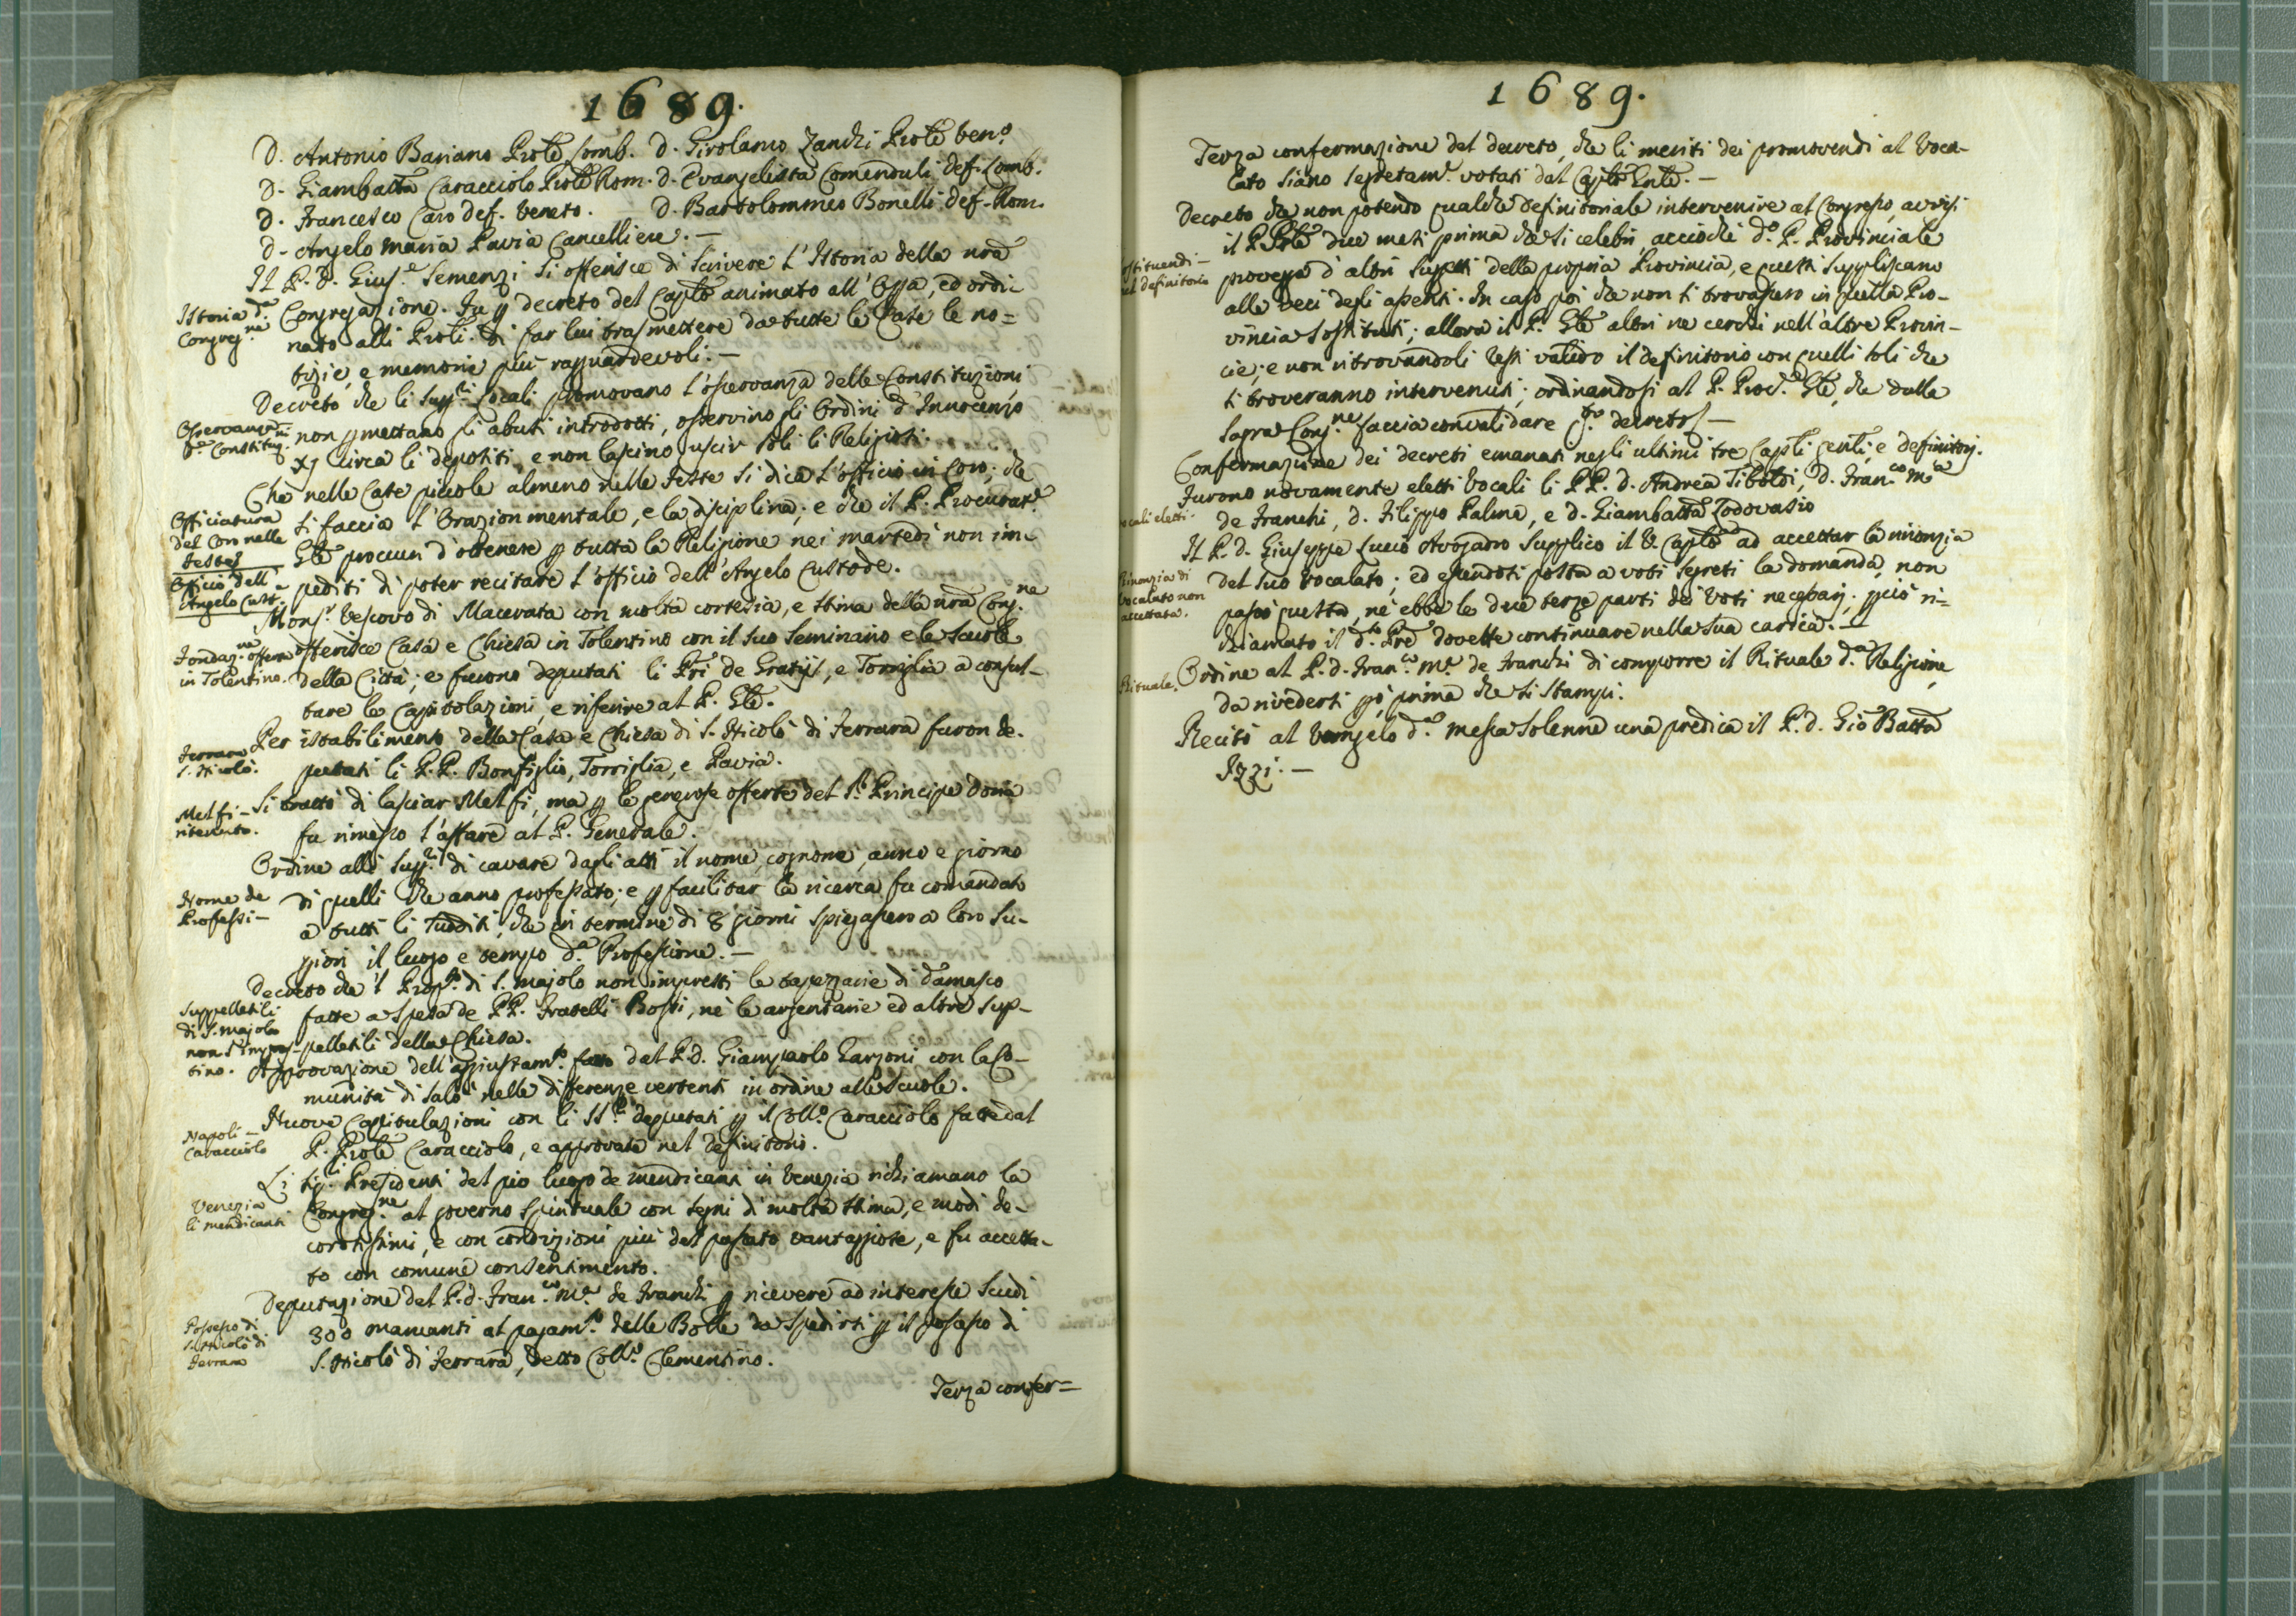 1689.
D. Antonio Bariano Prole Lomb. D. Girolamo Zanchi Prole Ven.o
D. Giambatta Caracciolo Prole Rom. D. Evangelista Comenduli def. Lomb.
D. Francesco Caro def. Veneto. D. Bartolommeo Bonelli def. Rom.
D. Angelo Maria Pavia Cancelliere. —
Il P. D. Gius.e Semenzi si offerisce di scrivere l'Istoria della nrã
Istoria d.a
Congreg.ne
Congregazione. Fu p decreto del Caplo animato all'Opa, ed ordi-
nato alli Proli. di far lui trasmettere da tutte le Case le no=
tizie, e memorie più ragguardevoli. —
Decreto che li Supp.ri locali promovano l'osservanza delle Constituzioni
Osservanza
d.e Constituz.ni
non pmettano gli abusi introdotti, osservino gli Ordini d'Innocenzo
XI circa li depositi, e non lascino uscir soli li Religiosi.
Che nelle Case piccole almeno nelle feste si dica l'officio in Coro; che
Officiatura
del Coro nelle
feste
si faccia l'Orazion mentale, e la disciplina; e che il P. Procurat.e
Gle procuri d'ottenere p tutta la Religione nei martedì non im-
Officio dell'
Angelo Cust.e
pediti di poter recitare l'officio dell'Angelo Custode.
Mons.r Vescovo di Macerata con molta cortesia, e stima della nrã Cong.ne
Fondaz.ne offerta
in Tolentino.
offerisce Casa e Chiesa in Tolentino con il suo Seminario e le Scuole
della Città; e furono deputati li Pri de Gratijs, e Torriglia a consul-
tare le Capitolazioni, e riferire al P. Gle.
Per istabilimento della Casa e Chiesa di S. Nicolò di Ferrara furon de-
Ferrara
S. Nicolò.
putati li P.P. Bonfiglio, Torriglia, e Pavia.
Si trattò di lasciar Melfi, ma p le generose offerte del S.r Principe Doria
Melfi —
ritenuto.
fu rimesso l'affare al P. Generale.
Ordine alli Supp.ri di cavare dagli atti il nome, cognome, anno e giorno
Nome de
Professi —
di quelli che anno professato; e p facilitar la ricerca fu comandato
a tutti li sudditi, che in termine di 8 giorni spiegassero a loro Su-
piori il luogo e tempo d.a Professione. —
Decreto che 'l Prop.to di S. Majolo non impresti le tapezzarie di damasco
Suppellettili
di S. Majolo
non s'impres-
tino.
fatte a spesa de PP. Fratelli Bossi, nè le argentarie ed altre sup-
pellettili della Chiesa.
Approvazione dell'aggiustam.to fatto dal P. D. Giampaolo Garzoni con la Co-
munità di Salò nelle differenze vertenti in ordine alle Scuole.
Nuove Capitulazioni con li SS.ri deputati p il Coll.o Caracciolo fatte dal
Napoli —
Caracciolo
P. Prole Caracciolo, e approvate nel definitorio.
Li Sig.ri Presidenti del pio luogo de mendicanti in Venezia richiamano la
Venezia
li mendicanti
Congreg.ne al governo spirituale con segni di molta stima, e modi de-
corosissimi, e con condizioni più del passato vantaggiose, e fu accetta-
to con comune consentimento.
Deputazione del P. d. Fran.co M.a de Franchi p ricevere ad interesse Scudi
Possesso di
S. Nicolò di
Ferrara
300 mancanti al pagam.to delle Bolle da spedirsi p il possesso di
S. Nicolò di Ferrara, detto Coll.o Clementino.
Terza confer=
1689.
Terza confermazione del decreto, che li meriti dei promovendi al Voca-
lato siano segretam.e votati dal Caplo Gnle. —
Decreto che non potendo qualche definitoriale intervenire al Congresso, avvisi
il P. Prle due mesi prima che si celebri, acciochè d.o P. Provinciale
ostituendi —
nel definitorio
provegga d'altri Suggetti della propria Provincia, e questi suppliscano
alle veci degli assenti. In caso poi che non si trovassero in quella Pro-
vincia sostituti; allora il P. Gle altri ne cerchi nell'altre Provin-
cie; e non ritrovandoli resti valido il definitorio con quelli soli che
si troveranno intervenuti; ordinandosi al P. Proc.r Gle, che dalla
Sagra Cong.ne faccia convalidare q.to decreto —
Confermazione dei decreti emanati negli ultimi tre Capli genli, e definitorj.
Furono novamente eletti Vocali li P.P. d. Andrea Tiboldi, D. Fran.co M.a
ocali eletti.
de Franchi, d. Filippo Palma, e d. Giambatta Lodovasio
Il P. d. Giuseppe Lucio Avogadro supplicò il V. Caplo ad accettar la rinonzia
Rinonzia di
Vocalato non
accettata.
del suo Vocalato; ed essendosi posta a voti segreti la domanda, non
passò questa, nè ebbe le due terze parti dei Voti necessarj; pciò ri=
chiamato il d.to Pre dovette continuare nella sua carica. —
Ordine al P. d. Fran.co M.a de Franchi di comporre il Rituale d.a Religione,
Rituale.
da rivedersi pò, prima che si stampi.
Recitò al Vangelo d.a messa solenne una predica il P. d. Gio Batta
Izzi. —